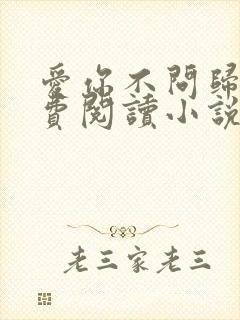 愛你不問歸
費閱讀小說
老三家老三